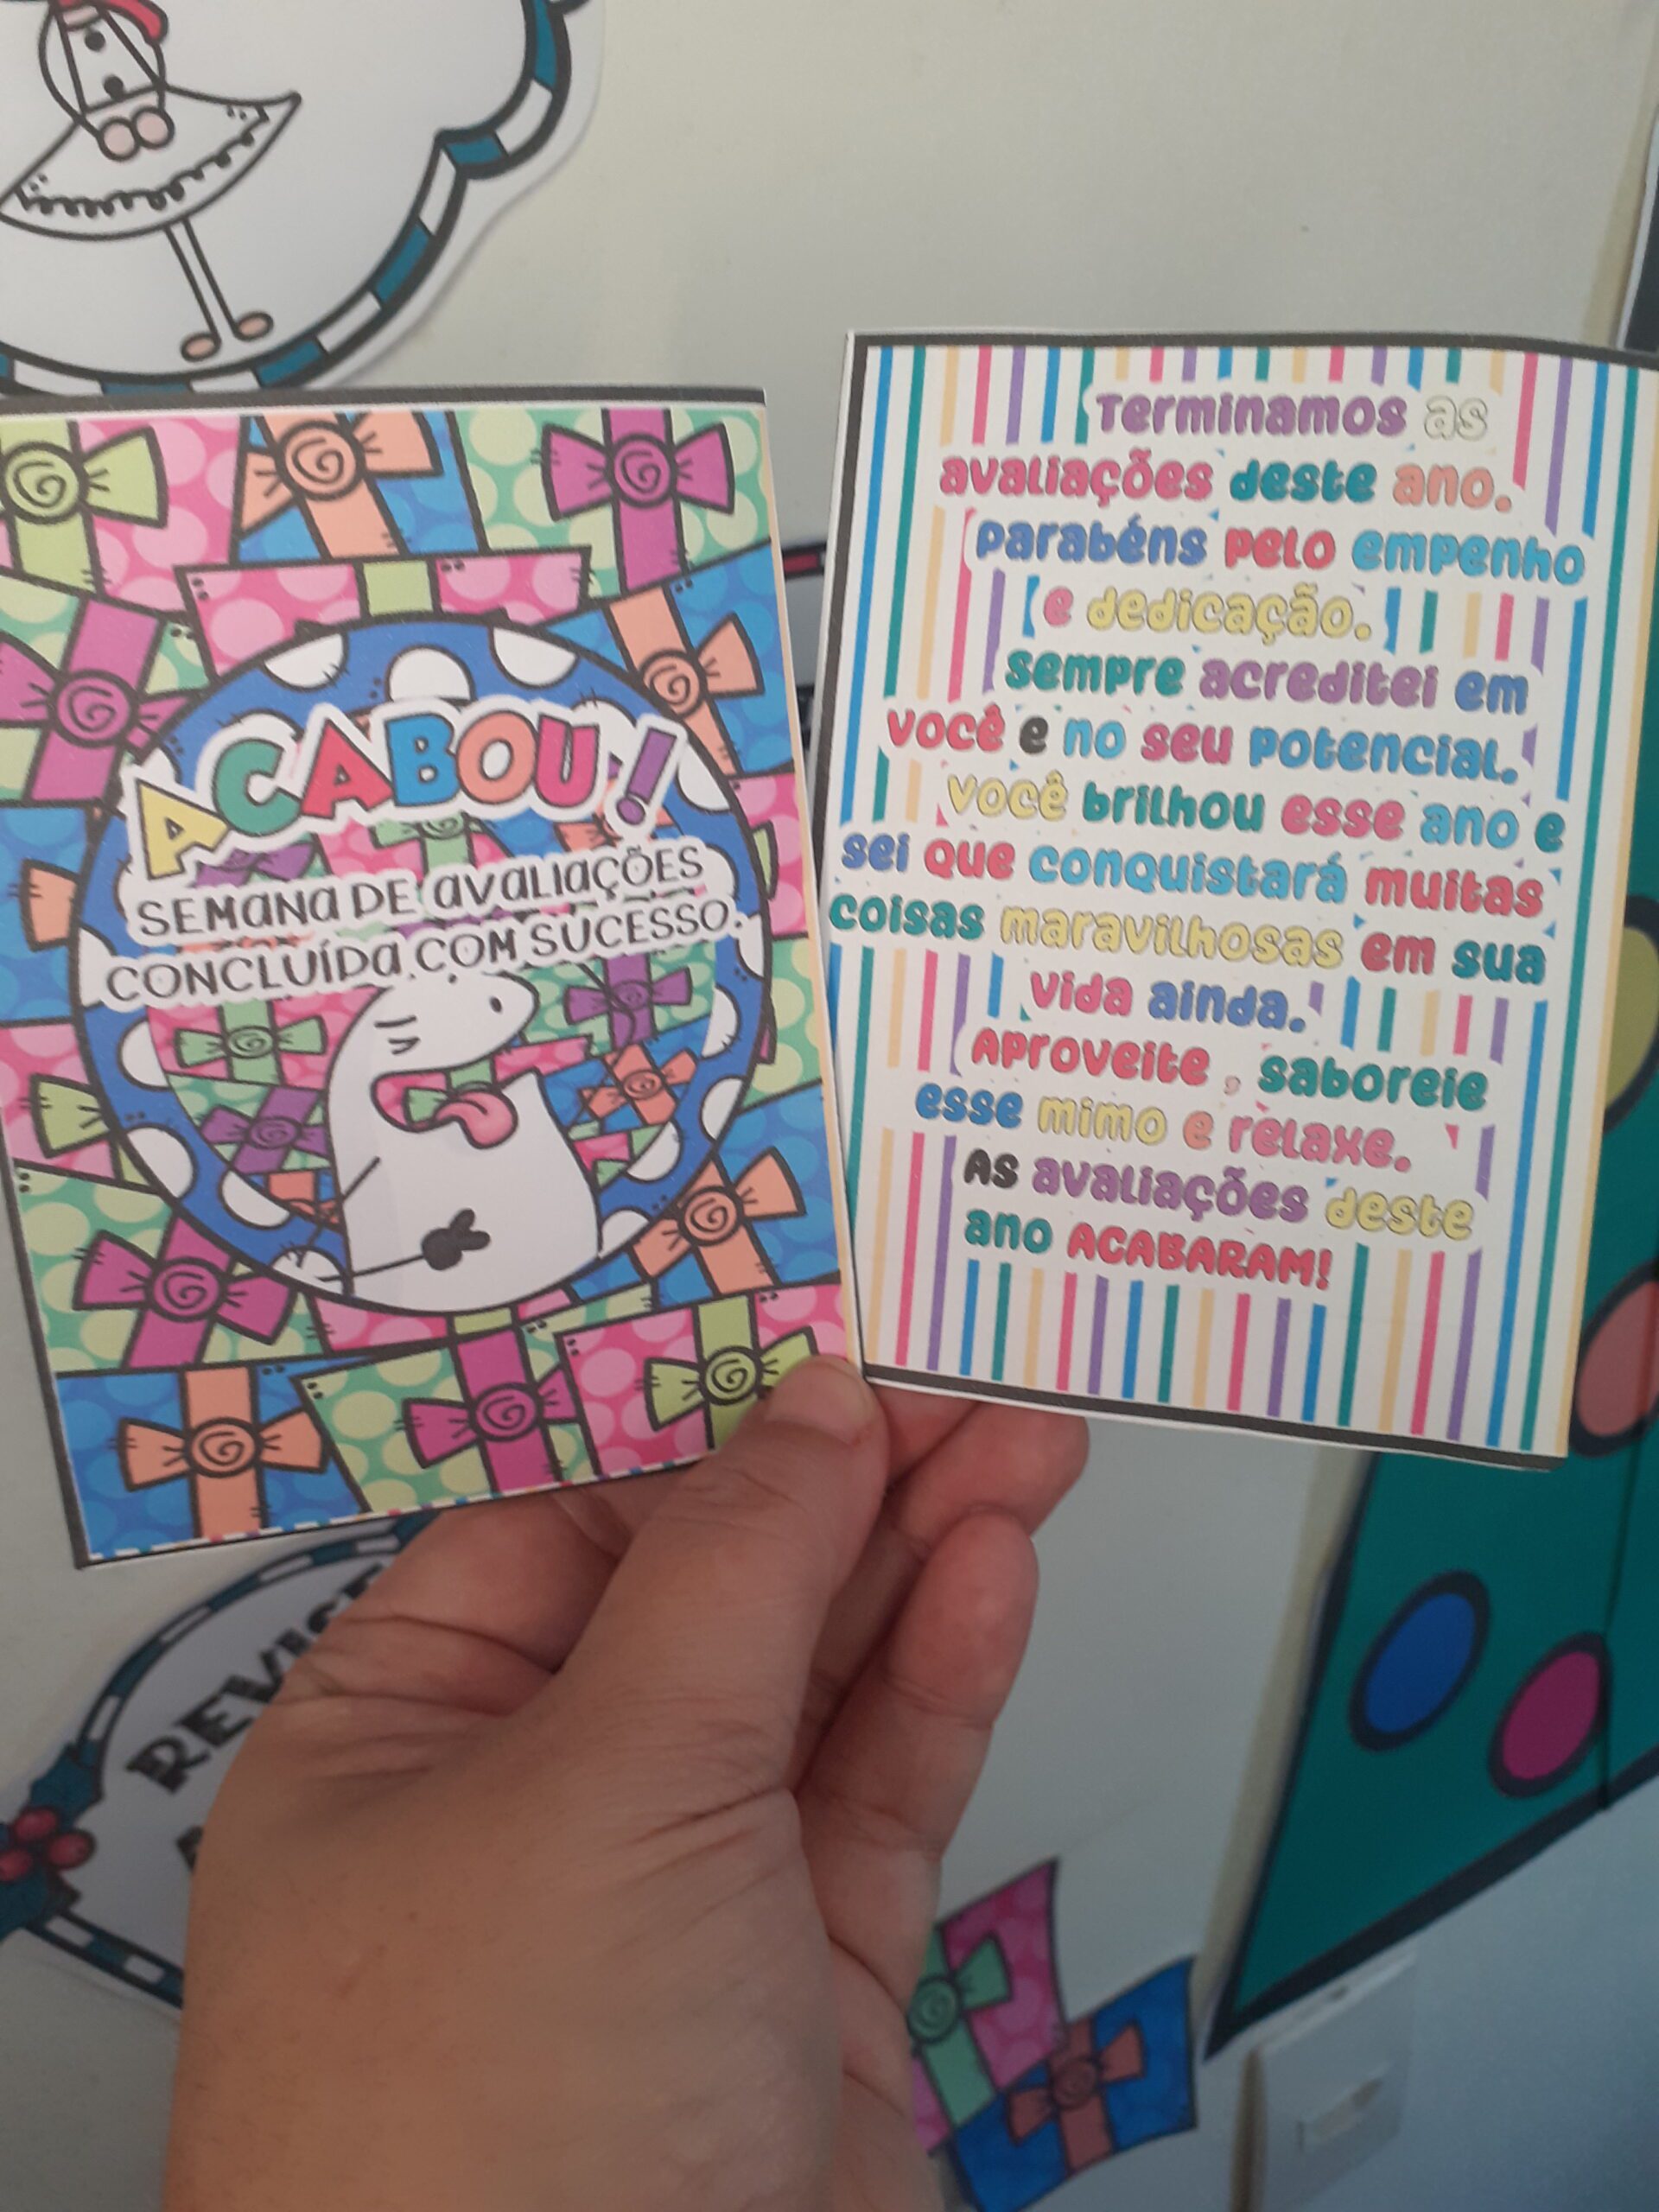 ACABOU!
SEMANA DE AVALIAÇÕES
CONCLUÍDA COM SUCESSO.
Terminamos as
avaliações deste ano.
Parabéns pelo empenho
e dedicação.
Sempre acreditei em
você e no seu potencial.
Você brilhou esse ano e
sei que conquistará muitas
coisas maravilhosas em sua
vida ainda.
Aproveite , saboreie
esse mimo e relaxe.
As avaliações deste
ano ACABARAM!